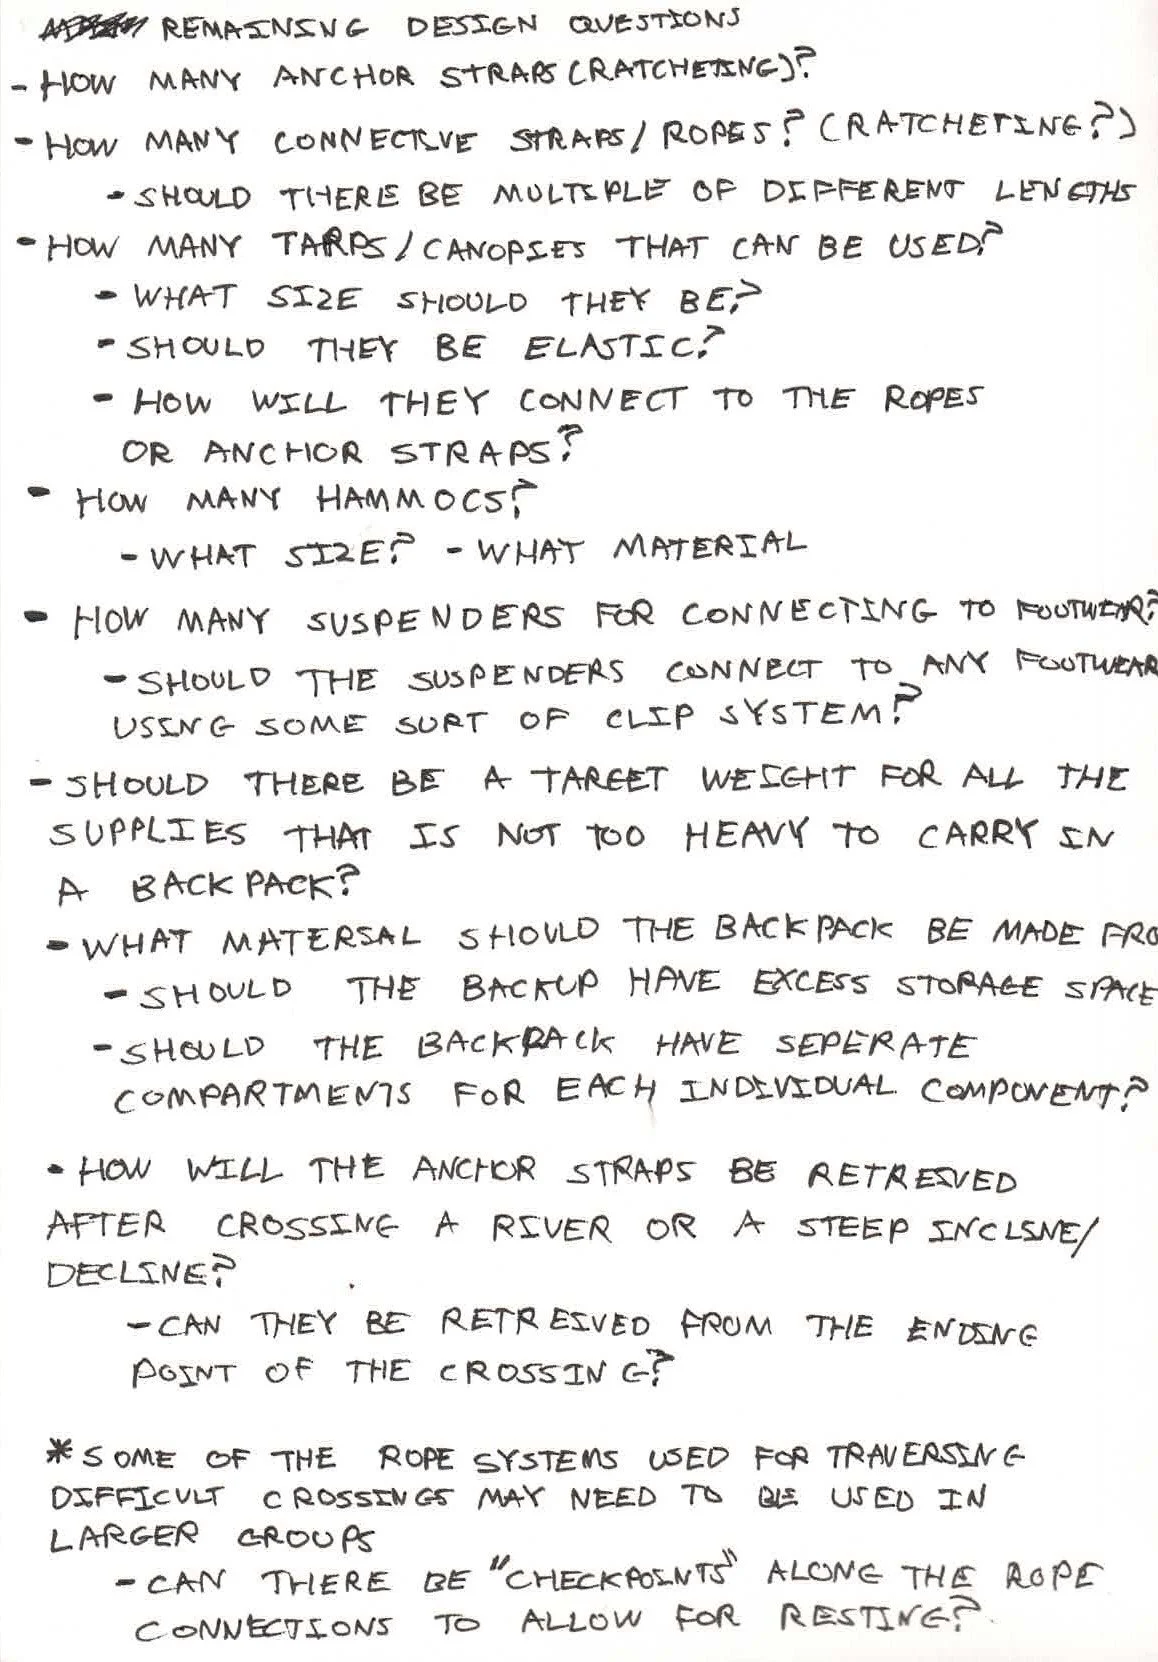 REMAINING DESIGN QUESTIONS
- HOW MANY ANCHOR STRAPS (RATCHETING)?
- HOW MANY CONNECTIVE STRAPS/ROPES? (RATCHETING?)
- SHOULD THERE BE MULTIPLE OF DIFFERENT LENGTHS
- HOW MANY TARPS/CANOPIES THAT CAN BE USED?
- WHAT SIZE SHOULD THEY BE?
- SHOULD THEY BE ELASTIC?
- HOW WILL THEY CONNECT TO THE ROPES
OR ANCHOR STRAPS?
- HOW MANY HAMMOCS?
- WHAT SIZE? - WHAT MATERIAL
- HOW MANY SUSPENDERS FOR CONNECTING TO FOOTWEAR?
- SHOULD THE SUSPENDERS CONNECT TO ANY FOOTWEAR
USING SOME SORT OF CLIP SYSTEM?
- SHOULD THERE BE A TARGET WEIGHT FOR ALL THE
SUPPLIES THAT IS NOT TOO HEAVY TO CARRY IN
A BACKPACK?
- WHAT MATERIAL SHOULD THE BACKPACK BE MADE FRO
- SHOULD THE BACKUP HAVE EXCESS STORAGE SPACE
- SHOULD THE BACKPACK HAVE SEPERATE
COMPARTMENTS FOR EACH INDIVIDUAL COMPONENT?
- HOW WILL THE ANCHOR STRAPS BE RETREIVED
AFTER CROSSING A RIVER OR A STEEP INCLINE/
DECLINE?
- CAN THEY BE RETREIVED FROM THE ENDING
POINT OF THE CROSSING?
* SOME OF THE ROPE SYSTEMS USED FOR TRAVERSING
DIFFICULT CROSSINGS MAY NEED TO BE USED IN
LARGER GROUPS
- CAN THERE BE "CHECKPOINTS" ALONG THE ROPE
CONNECTIONS TO ALLOW FOR RESTING?